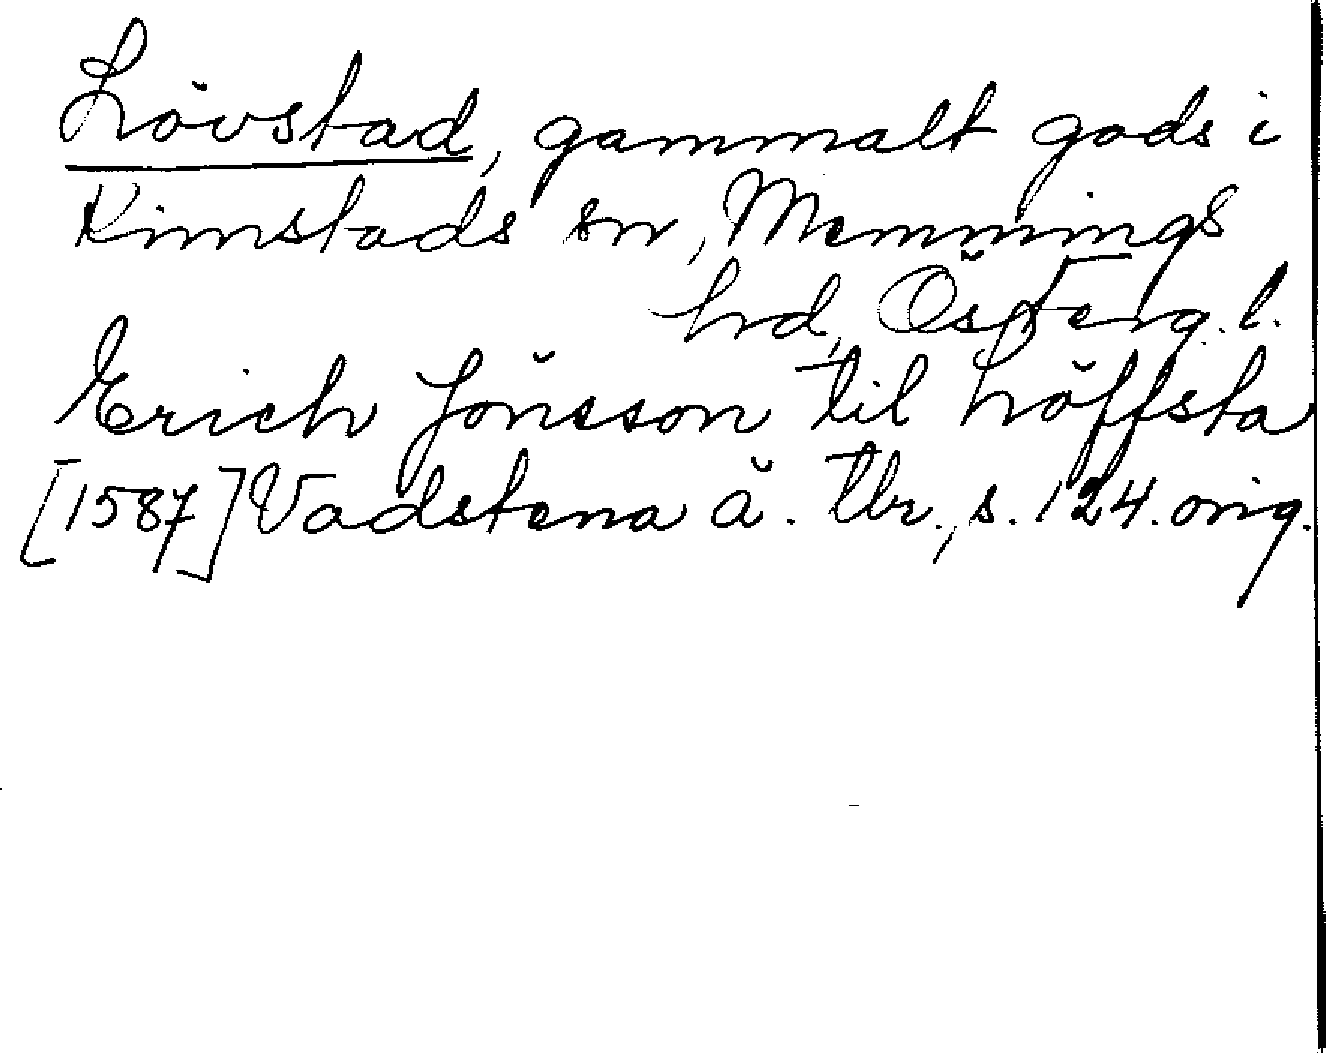 Lövstad, gammalt gods i
Kimstads sn, Memmings
hrd, Österg. l.
Erich Jönsson til Löffsta
[1587] Vadstena ä. tbr., s. 124. orig.